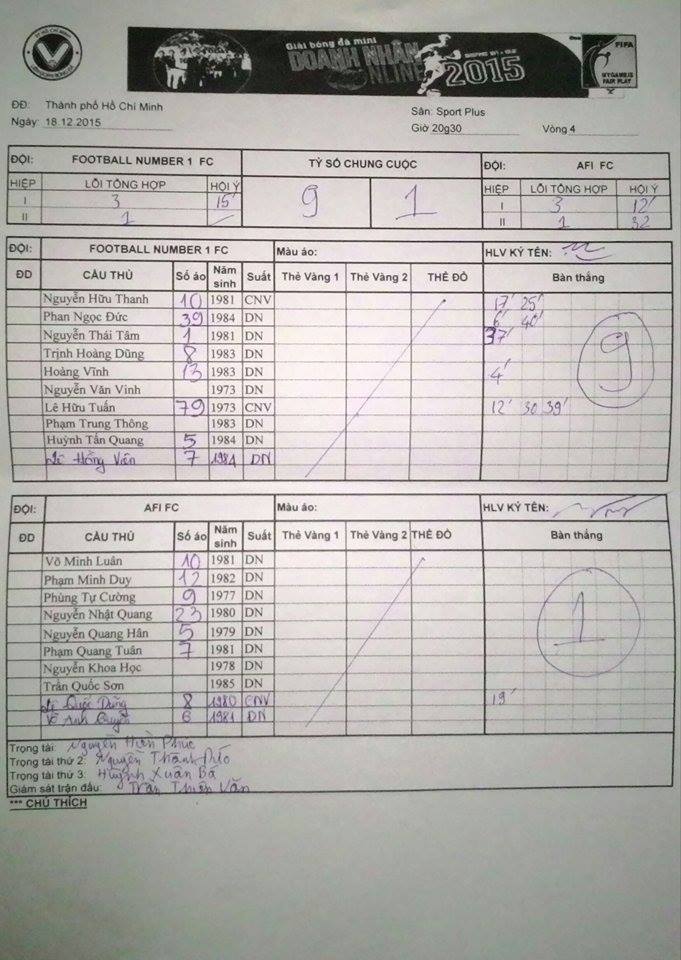 TP HỒ CHÍ MINH
LIÊN ĐOÀN BÓNG ĐÁ
Giải bóng đá mini
DOANH NHÂN
ONLINE 2015
FIFA
MY GAME IS
FAIR PLAY
ĐĐ: Thành phố Hồ Chí Minh
Sân: Sport Plus
Ngày: 18.12.2015
Giờ 20g30 Vòng 4
ĐỘI: FOOTBALL NUMBER 1 FC TỶ SỐ CHUNG CUỘC ĐỘI: AFI FC
HIỆP LỖI TỔNG HỢP HỘI Ý 9 1 HIỆP LỖI TỔNG HỢP HỘI Ý
I 3 15' I 3 12'
II 1 II 1 32
ĐỘI: FOOTBALL NUMBER 1 FC Màu áo: HLV KÝ TÊN:
ĐD CẦU THỦ Số áo Năm sinh Suất Thẻ Vàng 1 Thẻ Vàng 2 THẺ ĐỎ Bàn thắng
Nguyễn Hữu Thanh 10 1981 CNV 17' 25'
Phan Ngọc Đức 39 1984 DN 6' 40'
Nguyễn Thái Tâm 1 1981 DN 37'
Trịnh Hoàng Dũng 8 1983 DN
Hoàng Vĩnh 13 1983 DN 4'
Nguyễn Văn Vinh 1973 DN
Lê Hữu Tuấn 79 1973 CNV 12' 30 39'
Phạm Trung Thông 1983 DN
Huỳnh Tấn Quang 5 1984 DN
Lê Hồng Viên 7 1984 DN
9
ĐỘI: AFI FC Màu áo: HLV KÝ TÊN:
ĐD CẦU THỦ Số áo Năm sinh Suất Thẻ Vàng 1 Thẻ Vàng 2 THẺ ĐỎ Bàn thắng
Võ Minh Luân 10 1981 DN
Phạm Minh Duy 12 1982 DN
Phùng Tự Cường 9 1977 DN
Nguyễn Nhật Quang 23 1980 DN
Nguyễn Quang Hân 5 1979 DN
Phạm Quang Tuân 7 1981 DN
Nguyễn Khoa Học 1978 DN
Trần Quốc Sơn 1985 DN
Lê Quốc Dũng 8 1980 CNV 19'
Võ Anh 6 1981 DN
1
Trọng tài: Nguyễn Hiền Phúc
Trọng tài thứ 2: Nguyễn Thành Đức
Trọng tài thứ 3: Huỳnh Xuân Bá
Giám sát trận đấu: Trần Thiện Văn
*** CHÚ THÍCH